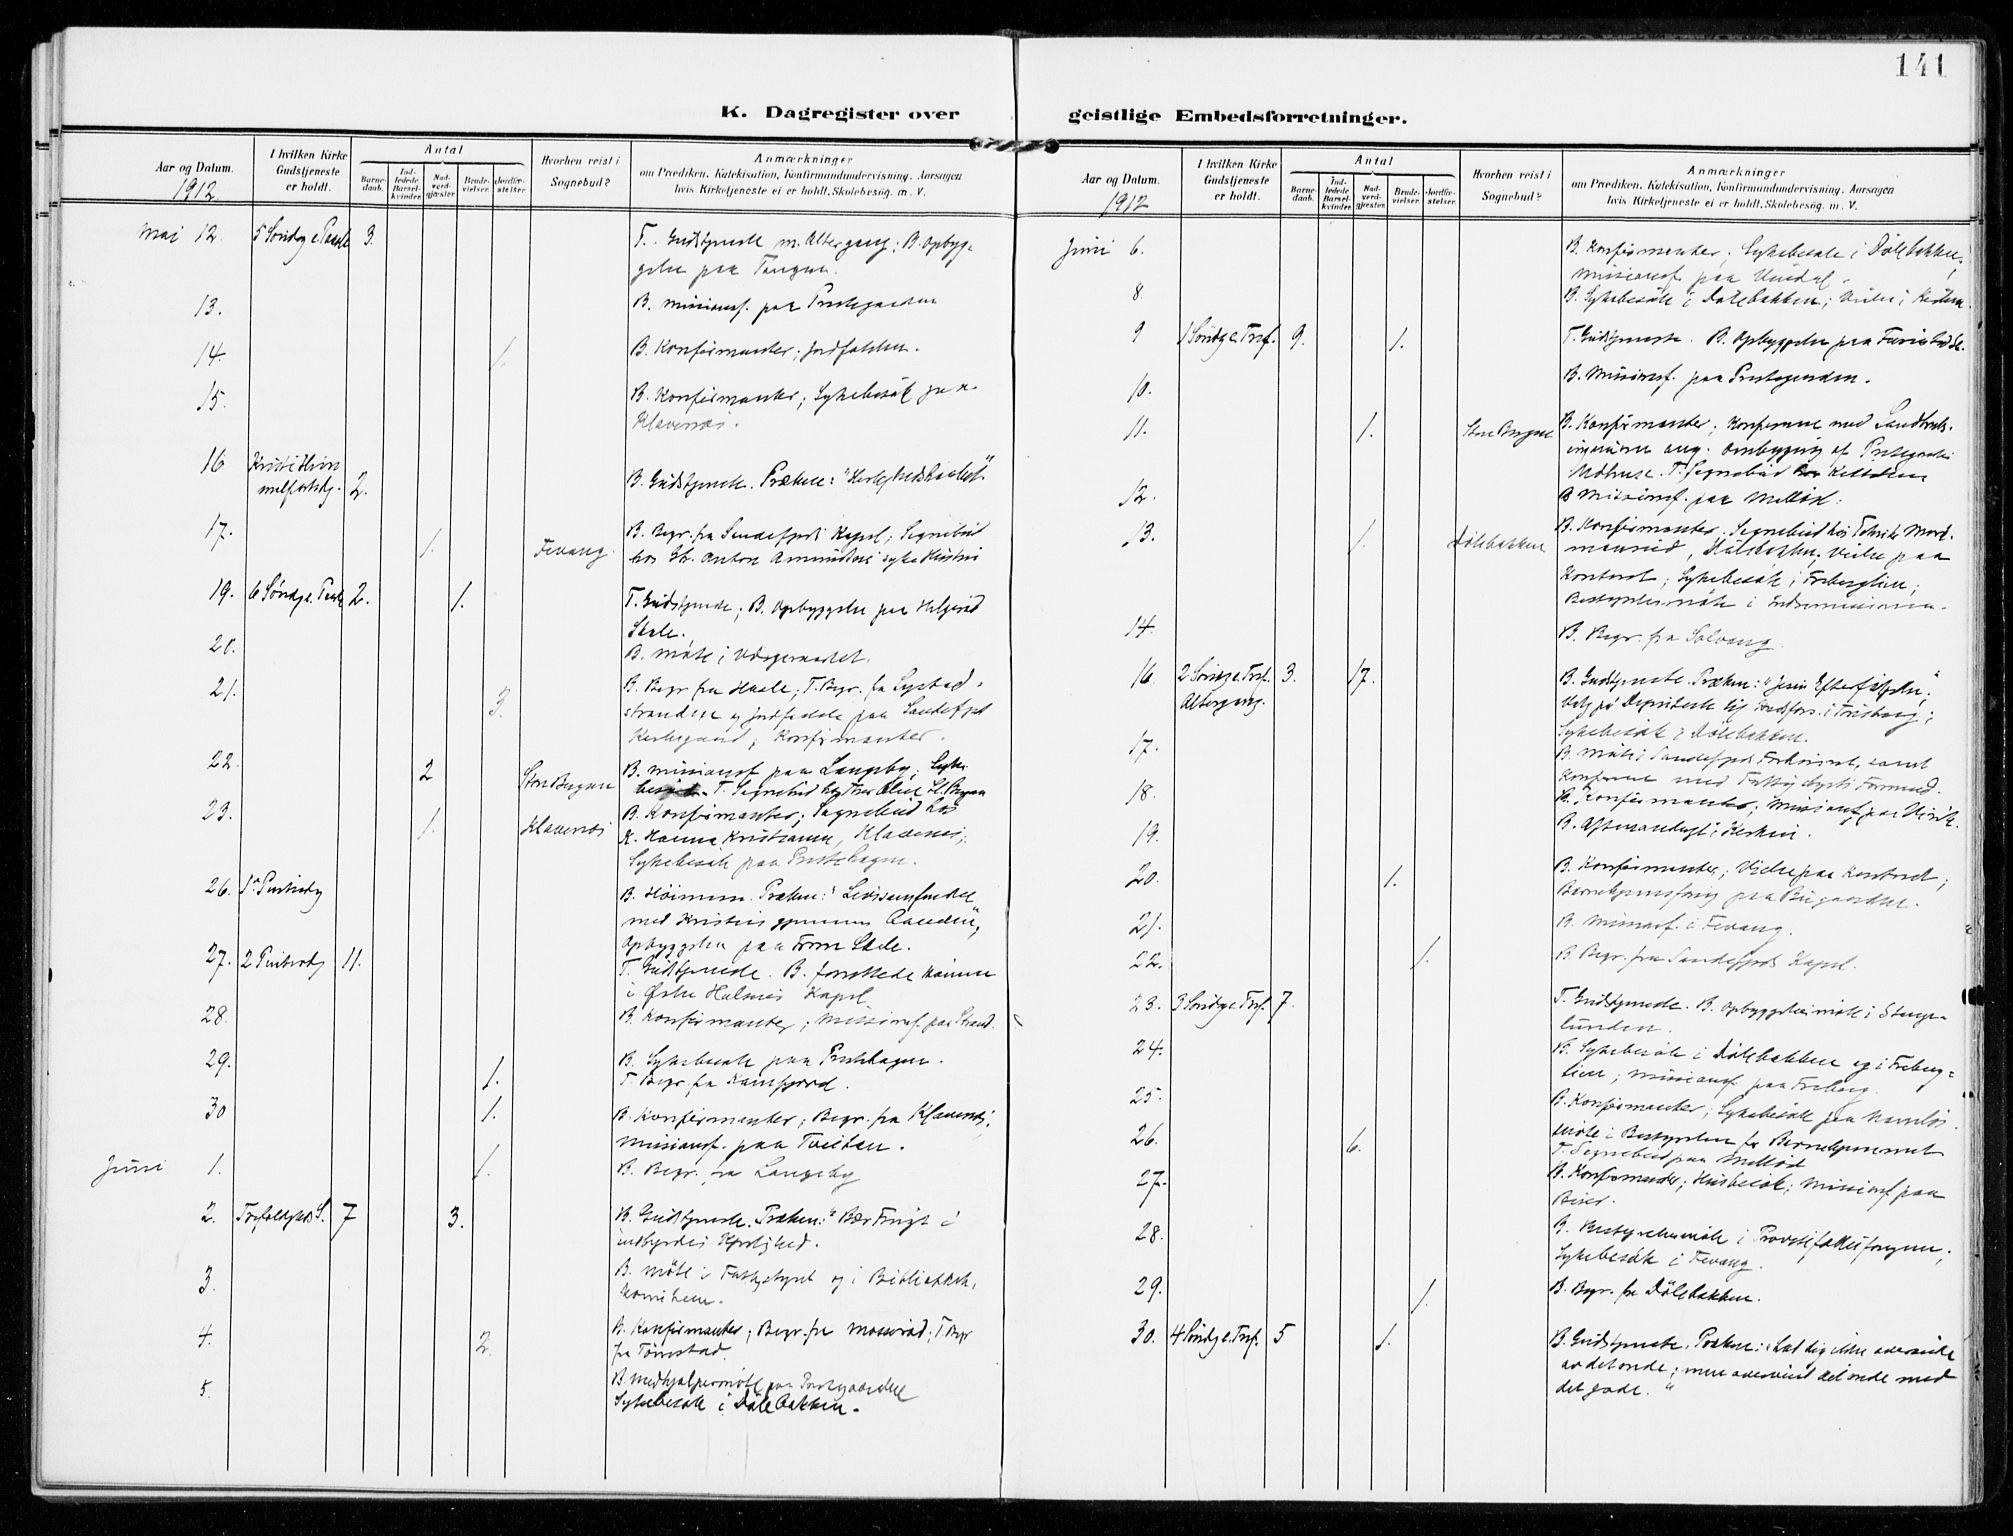 141
K. Dagregister over geistlige Embedsforretninger.
Aar og Datum.
1912
I hvilken Kirke Gudstjeneste er holdt.
Antal
Barnedaab.
Indledede Barselkvinder.
Nadverdgjester.
Brudevielser.
Jordfæstelser.
Hvorhen reist i Sognebud?
Anmærkninger
om Prædiken, Katekisation, Konfirmandundervisning. Aarsagen
hvis Kirketjeneste ei er holdt. Skolebesøg. m. V.
Mai 12. 5 Søndag e. Paaske 3. T. Gudstjeneste m. Altergang; B. Opbyg-
gelse paa Tangen.
13. B. Missionsf. paa Prestegaarden
14. 1. B. Konfirmanter; Jordfæstelse.
15. B. Konfirmanter; Sykebesøk paa
Klavenes.
16 Kristi Him
melfartsdg. 2. B. Gudstjeneste. Præken:
17. 1. Fevang. B. Begr. fra Sandefjords Kapel; Sognebud
hos Gb. Anton Amundsens syke Hustru
19. 6 Søndg e. Paaske 2. 1. T. Gudstjeneste; B. Opbyggelse paa Helgerød
Skole.
20. B. Møte i Værgeraadet.
21. 3. B. Begr. fra Haale; T. Begr. fra Lystad-
stranden og Jordfæstelse paa Sandefjord
Kirkegaard; Konfirmanter.
22. 2 Store Bugaren B. Missionsf paa Langeby; Syke
T. Sognebud
23. 1. Klavenes B. Konfirmanter; Sognebud hos
K. Hanna Kristiansen, Klavenes;
Sykebesøk paa Prestehagen.
26. 1ste Pintsedg B. Høimesse. Præken: "Livssamfundet
med Kristus gjennem Aanden";
Opbyggelse paa Skole.
27. 2 Pintsedg 11. T. Gudstjeneste. B. forrettede
i Østre Halsens Kapel.
28. B. Konfirmanter; Missionsf. paa Strand.
29. 1. B. Sykebesøk paa Prestehagen.
T. Begr. fra Kamfjord.
30 1. B. Konfirmanter; Begr. fra Klavenes;
Missionsf. paa Tveitan.
Juni 1. 1. B. Begr. fra Langeby
2. Trefoldighds S. 7 3. B. Gudstjeneste. Præken: "Bær Frugt i
indbyrdes Kjærlighed.
3. B. Møte i Fattigstyret og i Bibliotek-
komiteen.
4. 2. B. Konfirmanter; Begr. fra Massерød; T. Begr
fra Tønstad.
5. B. Medhjælpermøte paa Prestegaarden
Sykebesøk i Dølebakken.
Aar og Datum.
1912
I hvilken Kirke Gudstjeneste er holdt.
Antal
Barnedaab.
Indledede Barselkvinder.
Nadverdgjester.
Brudevielser.
Jordfæstelser.
Hvorhen reist i Sognebud?
Anmærkninger
om Prædiken, Katekisation, Konfirmandundervisning. Aarsagen
hvis Kirketjeneste ei er holdt. Skolebesøg. m. V.
Juni 6. B. Konfirmanter; Sykebesøk i Dølebakken;
Missionsf paa Unedal.
8. B. Sykebesøk i Dølebakken; Vielse i Kirken.
9 1 Søndg e. Tref. 9. 1. T. Gudstjeneste. B. Opbyggelse paa
10. B. Missionsf. paa Prestegaarden.
11. 1. Store Bugaren B. Konfirmanter; Konferense med Landbruks-
ingeniøren ang. Ombygning af Prestegaardens
Uthuse. T. Sognebud
12. B Missionsf. paa Melløs.
13. 1. Dølebakken B. Konfirmanter, Sognebud hos
Dølebakken; Vielse paa
Kontoret; Sykebesøk i Freberglien;
Bestyrelsesmøte i Indremissionen.
14. B. Begr. fra Solvang.
16. 2 Søndg e. Tref. 3. 17. B. Gudstjeneste. Præken: "Jesu Efterfølgelse";
Altergang.
Sykebesøk i Dølebakken.
17. B. Møte i Sandefjords Forhørsret, samt
Konferense med Fattigstyrets Formand.
18. B. Konfirmanter; Missionsf. paa
19. B. Aftensandagt i Kirken.
20. 1. B. Konfirmanter; Vielse paa Kontoret;
Barnehjemsforening paa Bugaarden.
21. B. Missionsf. i Fevang.
22. 1. B. Begr. fra Sandefjords Kapel.
23. 3 Søndg e. Tref. 7. T. Gudstjeneste. B. Opbyggelsesmøte i Stange-
lunden.
24. B. Sykebesøk i Dølebakken og i Freberg-
lien; Missionsf paa Freberg.
25. B. Konfirmanter; Sykebesøk paa
26. 6. Møte i Bestyrelsen for Barnehjemmet
T. Sognebud paa Melløs
27. B. Konfirmander; Husbesøk; Missionsf paa
28. B. Bestyrelsesmøte i Provstifællesforeningen;
Sykebesøk i Fevang.
29. 1. B. Begr. fra Dølebakken.
30. 4 Søndg e. Tref. 5 1. B. Gudstjeneste. Præken: "Lad dig ikke overvinde
av det onde; men overvind det onde med
det gode."